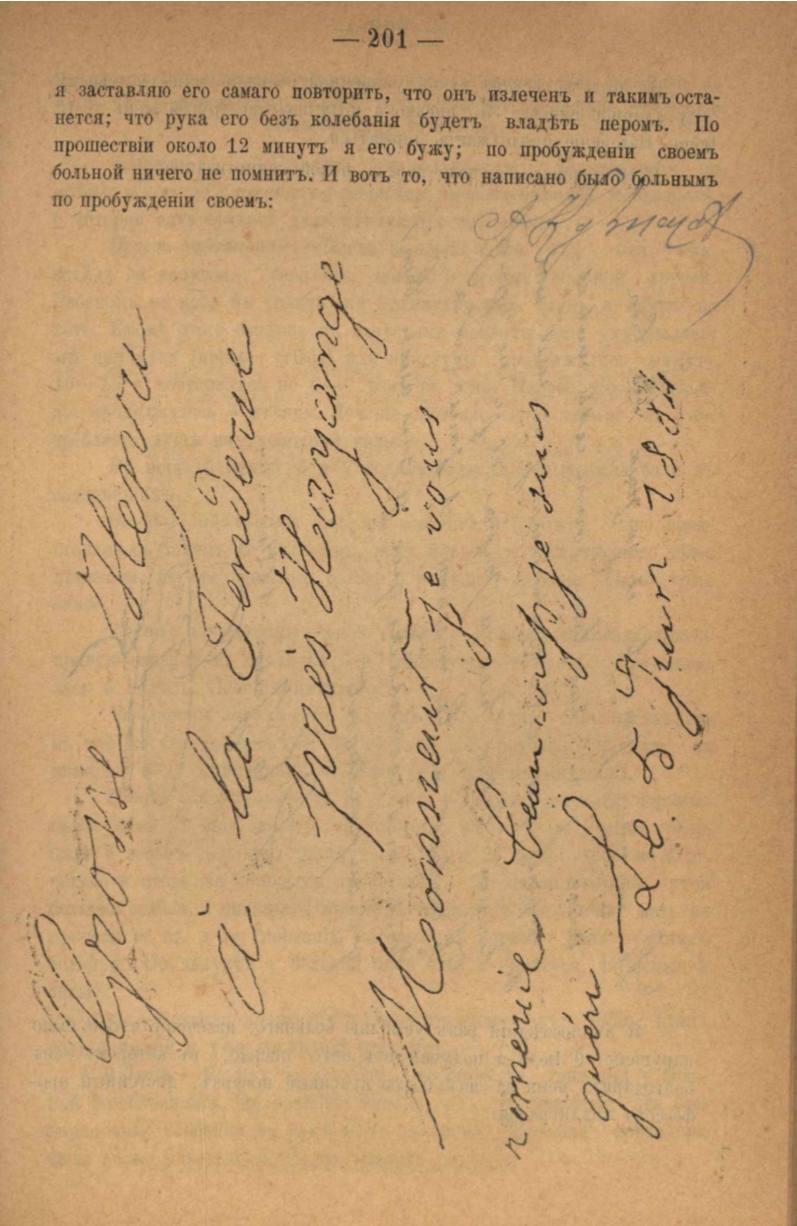 — 201 —
я заставляю его самаго повторить, что онъ излеченъ и такимъ оста-
нется; что рука его безъ колебанія будетъ владѣть перомъ. По
прошествіи около 12 минутъ я его бужу; по пробужденіи своемъ
больной ничего не помнитъ. И вотъ то, что написано было больнымъ
по пробужденіи своемъ:
Grosse Henri
à la Fenderie
près Hayange
Monsieur je vous
remerie beaucoup je suis
guéri
Le. 5 9 Juin 1884